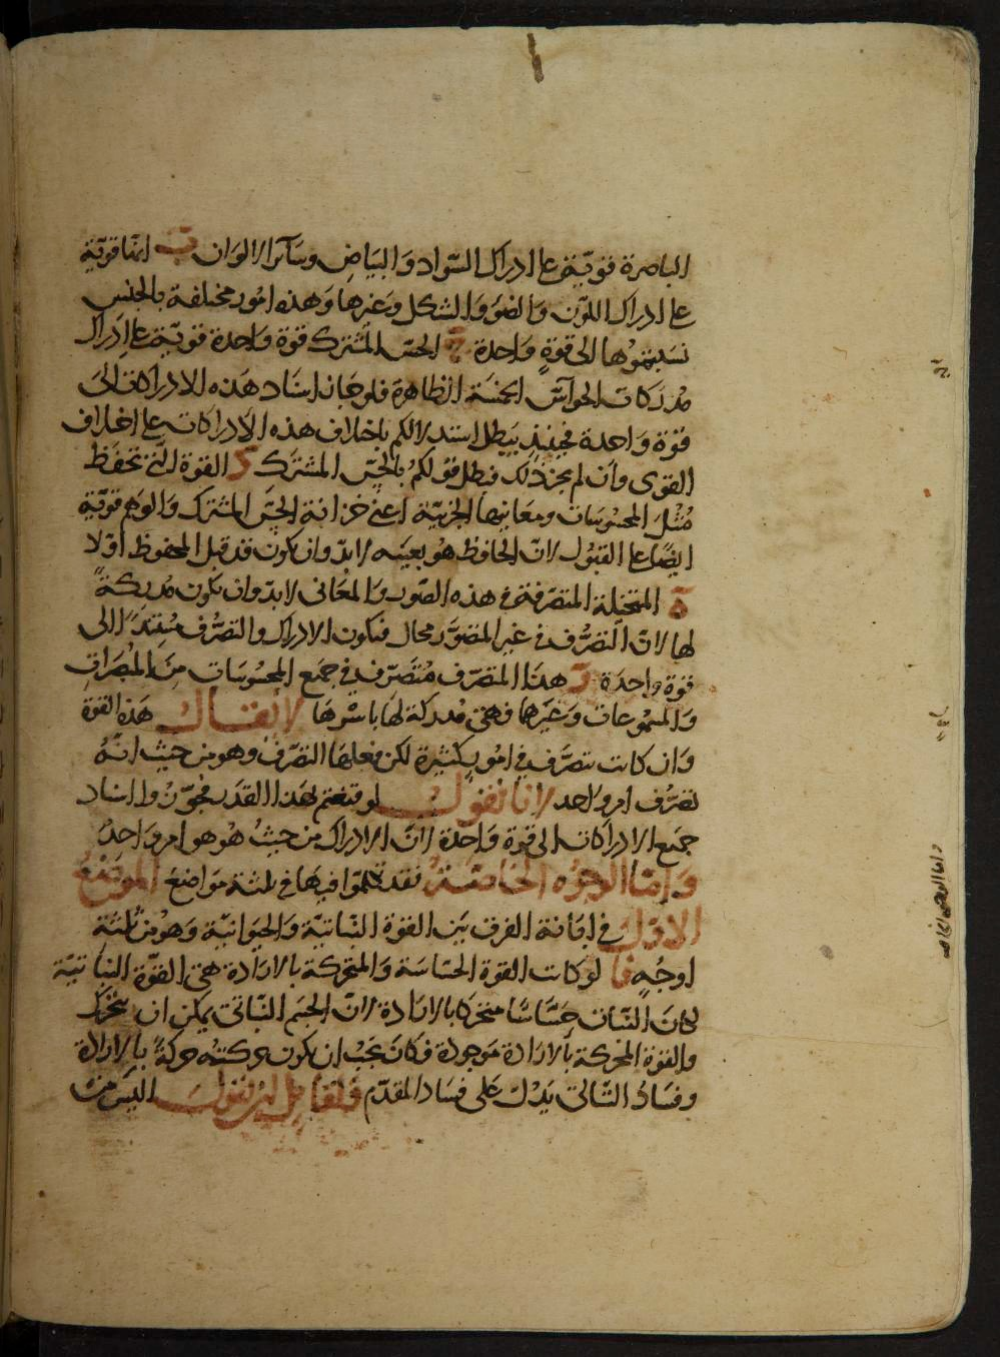 الباصرة قوية على ادراك السواد والبياض وسائر الالوان ب انها قوية
على ادراك اللون والضوء والشكل وغيرها وهذه امور مختلفة بالجنس
نسبتموها الى قوة واحدة ج الحس المشترك قوة واحدة قوية على ادراك
مدركات الحواس الخمسة الظاهرة فلو جاز اسناد هذه الادراكات الى
قوة واحدة فحينئذ يبطل استدلالكم باختلاف هذه الادراكات على اختلاف
القوى وان لم يجز ذلك فبطل قولكم بالحس المشترك د القوة التى تحفظ
مثل المحسوسات ومعانيها الجزئية اعنى خزانة الحس المشترك والوهم قوية
ايضا على القبول لان الحافظ هو بعينه لابد وان يكون قد قبل المحفوظ اولا
ه المتخيلة المتصرفة فى هذه الصور والمعانى لابد وان تكون مدركة
لها لان التصرف فى غير المتصور محال فيكون الادراك والتصرف مستندا الى
قوة واحدة و هذا المتصرف متصرف فى جميع المحسوسات من المبصرات
والمسموعات وغيرها فهى مدركة لها باسرها لا يقال هذه القوة
وان كانت تتصرف فى امور كثيرة لكن فعلها التصرف وهو من حيث انه
تصرف امر واحد لانا نقول لو قنعتم بهذا القدر فجوزوا اسناد
جميع الادراكات الى قوة واحدة لان الادراك من حيث هو هو امر واحد
واما الوجوه الخاصة فقد تكلموا فيها فى ثلثة مواضع الموضع
الاول فى ابانة الفرق بين القوة النباتية والحيوانية وهو من ثلثة
اوجه ا لو كانت القوة الحساسة والمتحركة بالارادة هى القوة النباتية
لكان النبات حساسا متحركا بالارادة لان الجسم النباتى يمكن ان يتحرك
والقوة المحركة بالارادة موجودة فكان يجب ان يكون حركته حركة بالارادة
وفساد التالى يدل على فساد المقدم فلقائل ان يقول اليس من
واما الوجوه الخاصة